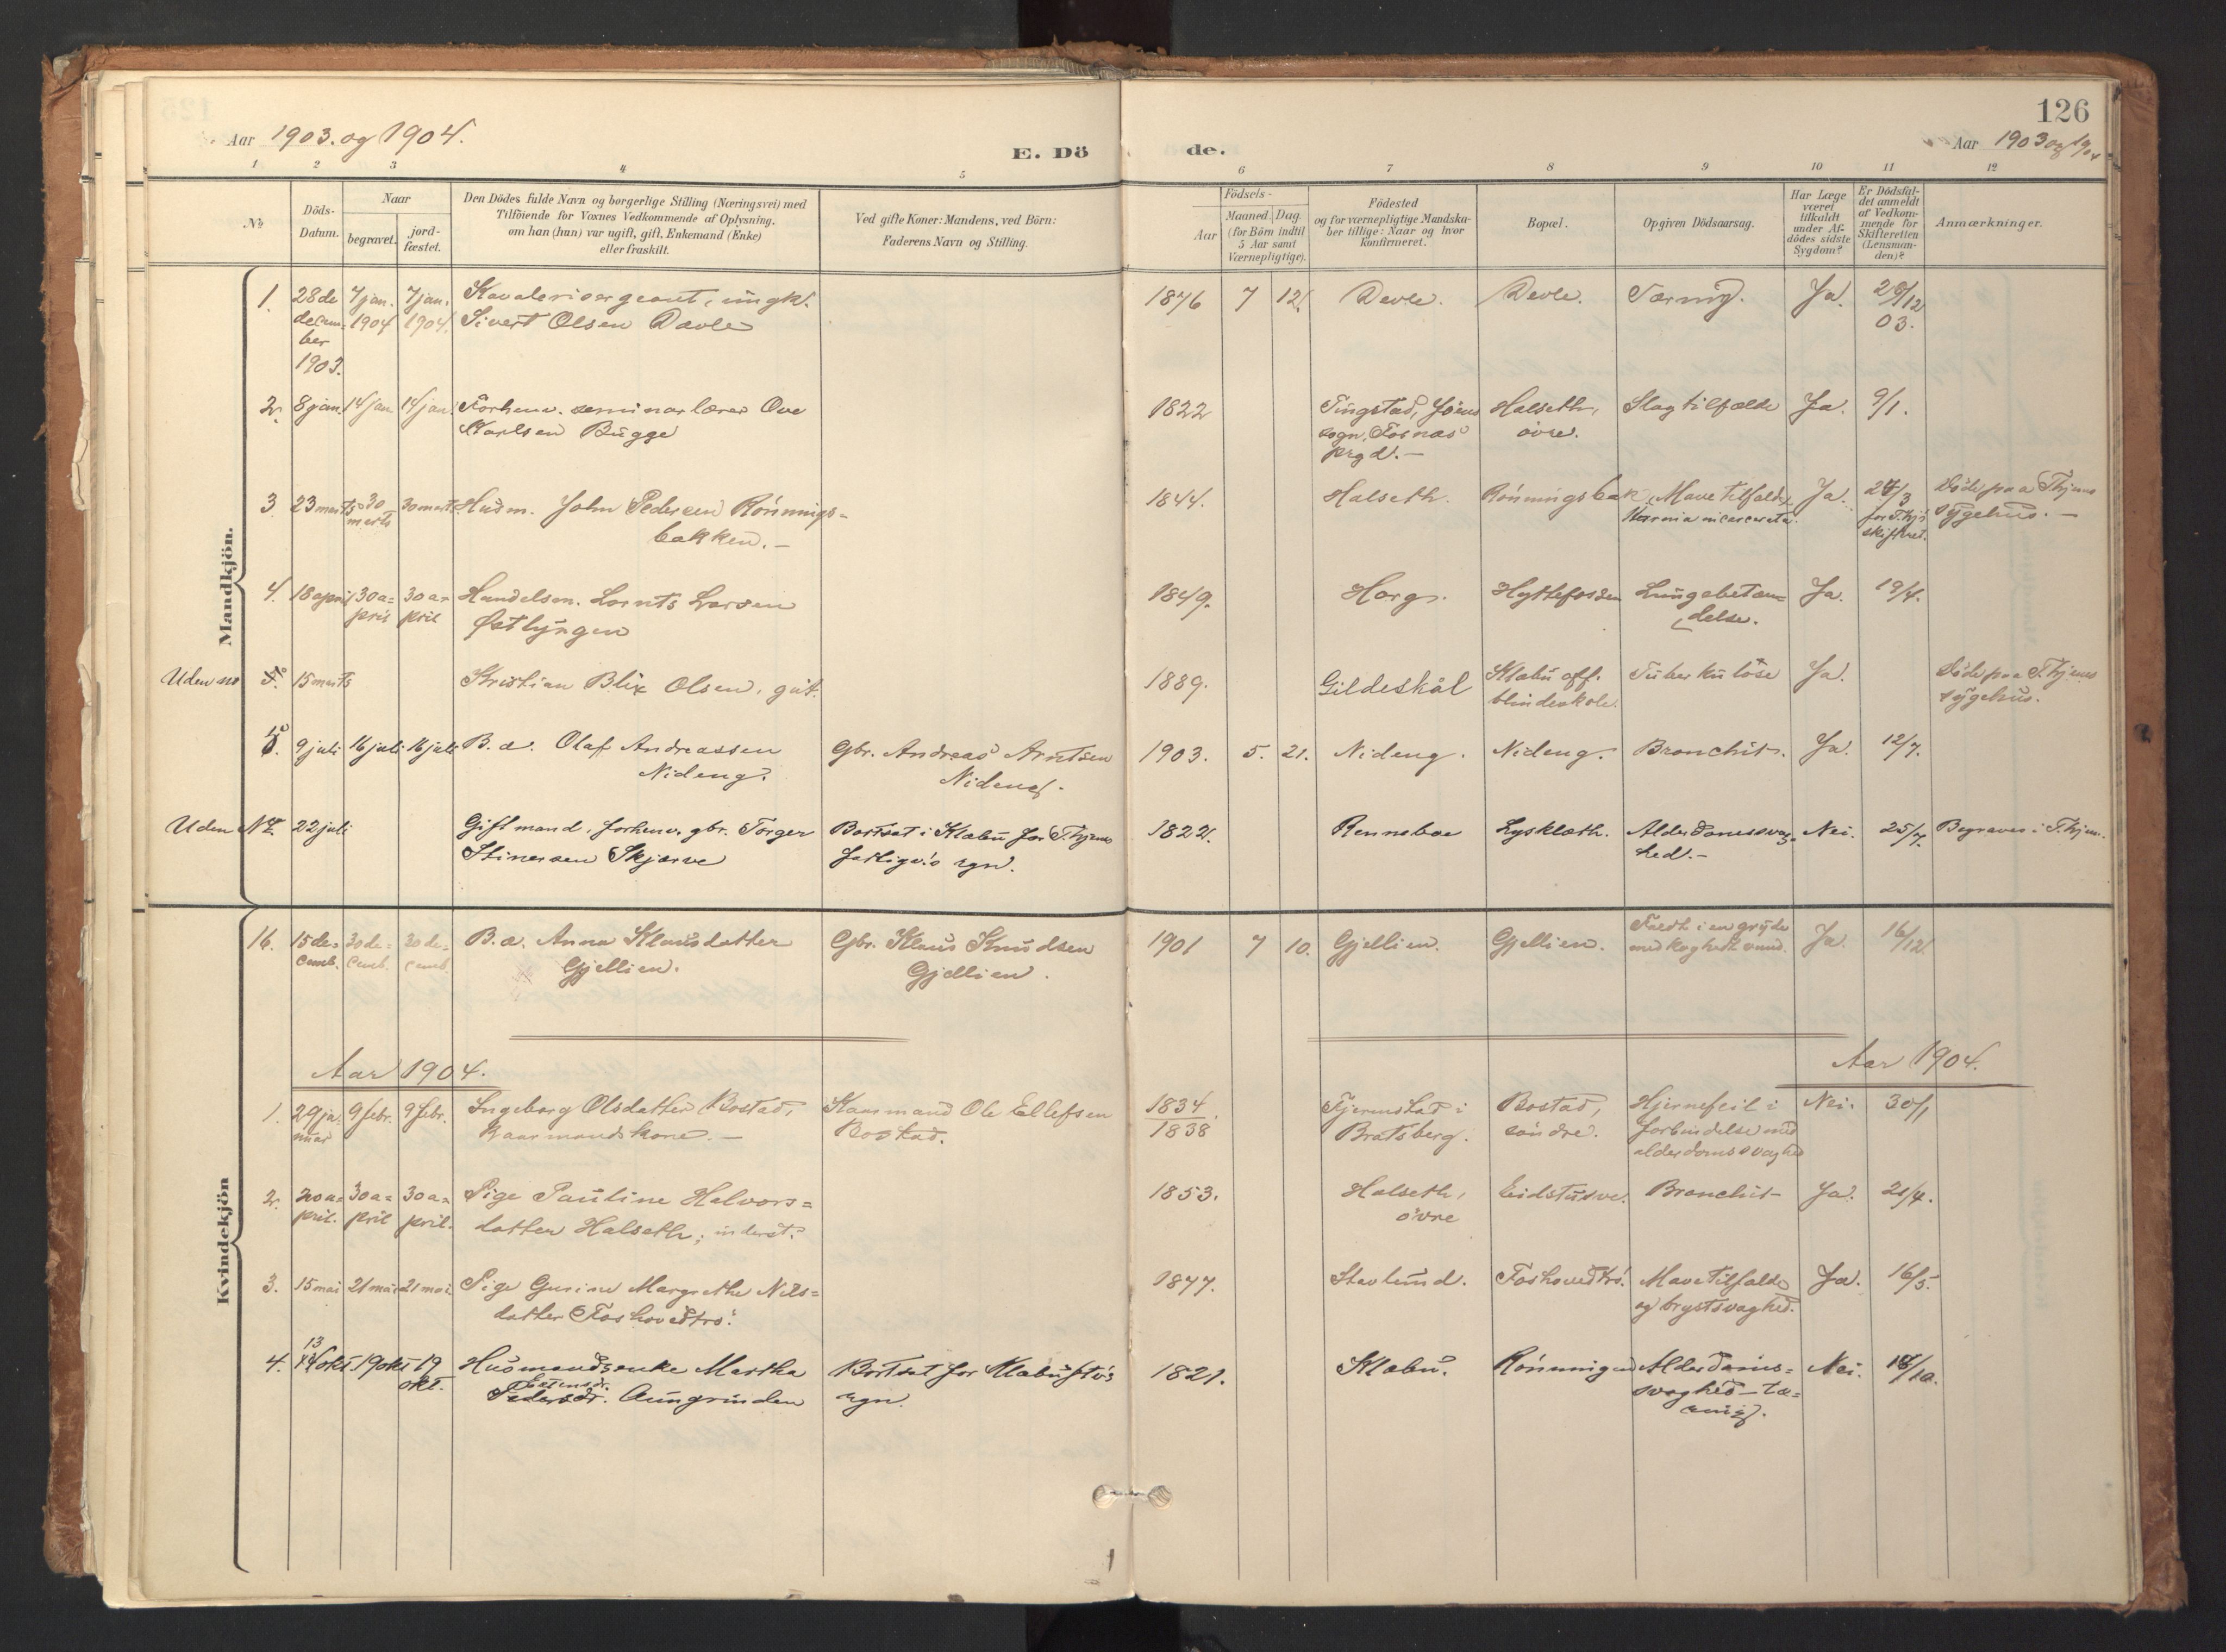 126
Aar 1903. og 1904.
E. Dö
de.
Aar 1903 og 1904
1 2 3 4 5 6 7 8 9 10 11 12
No.
Döds-
Datum.
Naar
begravet.
jord-
fæstet.
Den Dödes fulde Navn og borgerlige Stilling (Næringsvei) med
Tilföiende for Voxnes Vedkommende af Oplysning,
om han (hun) var ugift, gift, Enkemand (Enke)
eller fraskilt.
Ved gifte Koner: Mandens, ved Börn:
Faderens Navn og Stilling.
Födsels-
Aar
Maaned. Dag.
(for Börn indtil
5 Aar samt
Værnepligtige).
Födested
og for værnepligtige Mandska-
ber tillige: Naar og hvor
konfirmeret.
Bopæl.
Opgiven Dödsaarsag.
Har Læge
været
tilkaldt
under Af-
dödes sidste
Sygdom?
Er Dödsfal-
det anmeldt
af Vedkom-
mende for
Skifteretten
(Lensman-
den)?
Anmærkninger.
Mandkjön.
1. 28de 7 jan. 7 jan. Kavalerisergeant, ungk. 1876 7 12. Devle. Devle. Tæring. Ja. 29/12
decem- 1904 1904. Sivert Olsen Davle 03.
ber
1903.
2. 8 jan. 14 jan 14 jan. Forhenv. seminarlærer Ove 1822 Tingstad, Halseth, Slagtilfælde Ja. 9/1.
Karlsen Bugge sogn, Fosnæs övre.
prgd. —
3 23 marts 30 30 marts. Husm. John Pedersen Rönnings= 1844. Halseth. Rönningsbak. Mavetilfælde, Ja. 24/3 Döde paa Thjems
marts bakken. — Hernia incarcerata. for T.hjs sygehus. —
skifteret.
4. 18 april 30 a= 30 a= Handelsm. Lornts Larsen 1849. Horg. Hyttefossen Lungebetæn= Ja. 19/4.
pril pril Østlyngen delse.
Uden no 5. 15 marts Kristian Blix Olsen, gut. 1889. Gildeskål Klæbu off. Tuberkulöse Ja. Döde paa T.hjems
blindeskole. sygehus.
5. 9 juli 16 juli 16 juli B. æ. Olaf Andreassen Gbr. Andreas Arntsen 1903. 5. 21. Nideng. Nideng. Bronchit. Ja. 12/7.
Nideng. Nideng.
Uden No 22 juli Gift mand, forhenv. gbr. Torger Bortsat i Klæbu for T.hjems 1822. Renneboe Lysklæth. Alderdomssvag= Nei. 25/7. Begraves i T.hjem.
Stinersen Skjærve fattigv.s rgn. hed. —
Kvindekjön
16. 15 de= 30 de= 30 de= B. æ. Anna Klausdatter Gbr. Klaus Knudsen 1901 7 10. Gjellien. Gjellien. Faldt i en gryde Ja. 16/12.
cemb. cemb. cemb. Gjellien. Gjellien. med koghedt vand.
Aar 1904. Aar 1904.
1. 29 ja= 9 febr. 9 febr. Ingeborg Olsdatter Bostad, Kaarmand Ole Ellefsen 1834 Tjermstad i Bostad, Hjernefeil i Nei. 30/1
nuar Kaarmandskone. — Bostad. 1838 Bratsberg. söndre. forbindelse med
alderdomssvaghed
2. 20 a= 30 a= 30 a= Pige Pauline Halvors= 1853. Halseth, Eidstusve. Bronchit— Ja. 21/4.
pril. pril pril. datter Halseth, inderst. övre
3. 15 mai 21 mai 21 mai. Pige Gurine Margrethe Nils= 1847. Stavlund. Foshovedtrö. Mavetilfælde Ja. 16/5.
datter Foshovedtrö. og brystsvaghed.
4. 13 okt. 19 okt 19 Husmandsenke Martha Bortsat for Klæbu fv's 1821. Klæbu. Rönningen Alderdoms= Nei. /10.
okt. Estensdr. Pedersdr. Aungrinden rgn. svaghed — tæ=
ring.